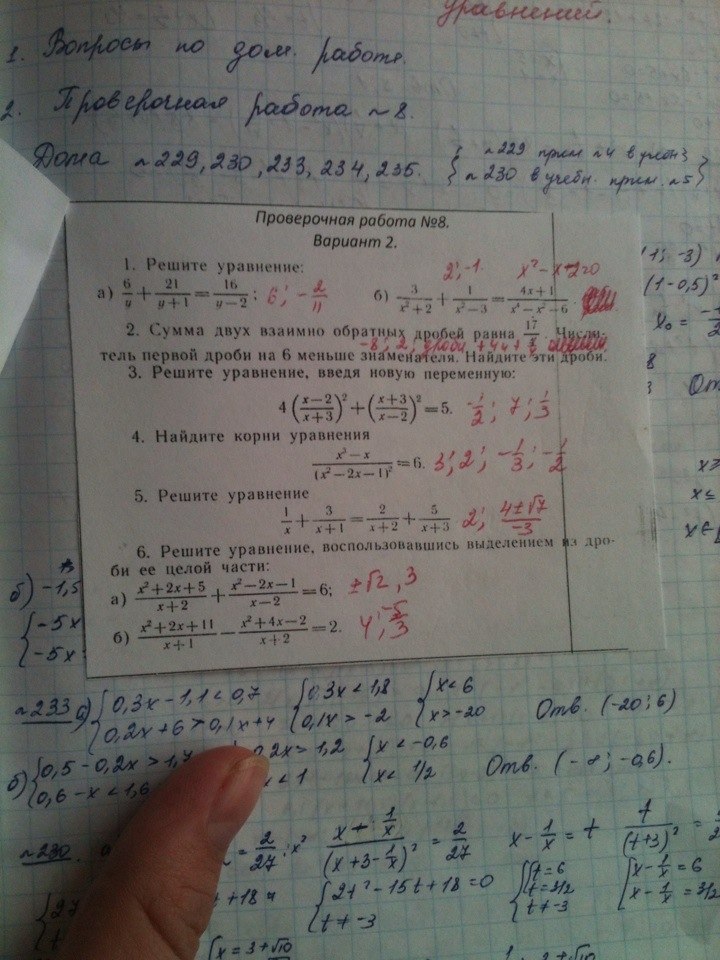 уравнений.
1. Вопросы по дом. работе.
2. Проверочная работа №8.
Дома №229, 230, 233, 234, 235. { №229 прим. №4 в учебн
№230 в учебн. прим. №5 }
Проверочная работа №8.
Вариант 2.
1. Решите уравнение: 2; -1. x² - x - 2 = 0
а) 6/y + 21/(y+1) = 16/(y-2); 6; -2/11 б) 3/(x²+2) + 1/(x²-3) = (4x+1)/(x⁴-x²-6).
2. Сумма двух взаимно обратных дробей равна 17/4. Числитель первой дроби на 6 меньше знаменателя. Найдите эти дроби.
-8; 2; дроби
3. Решите уравнение, введя новую переменную:
4((x-2)/(x+3))² + ((x+3)/(x-2))² = 5. -1/2; 7; 1/3
4. Найдите корни уравнения
(x³-x)/(x²-2x-1)² = 6. 3; 2; -1/3; -1/2
5. Решите уравнение
1/x + 3/(x+1) = 2/(x+2) + 5/(x+3) 2; (4±√7)/-3
6. Решите уравнение, воспользовавшись выделением из дроби ее целой части:
а) (x²+2x+5)/(x+2) + (x²-2x-1)/(x-2) = 6; ±√2, 3
б) (x²+2x+11)/(x+1) - (x²+4x-2)/(x+2) = 2. 4; -5/3
(1; -3)
(1-0,5)²
x₀ =
От
б) -1,5
{ -5x
-5x
№233 а) { 0,3x-1,1<0,7 { 0,3x<1,8 { x<6 Отв. (-20; 6)
0,2x+6>0,1x+4 0,1x>-2 x>-20
б) { 0,5-0,2x>1,7 0,2x>1,2 { x<-0,6 Отв. (-∞; -0,6).
0,6-x<1,6 x<1 x<1/2
№230. = 2/27 : x² (x+1/x)/(x+3-1/x)² = 2/27 x-1/x=t t/(t+3)² =
+18 { 2t²-15t+18=0 { t=6 { x-1/x=6
t≠-3 t=3/2 x-1/x=3/2
t≠-3
{ x=3+√10